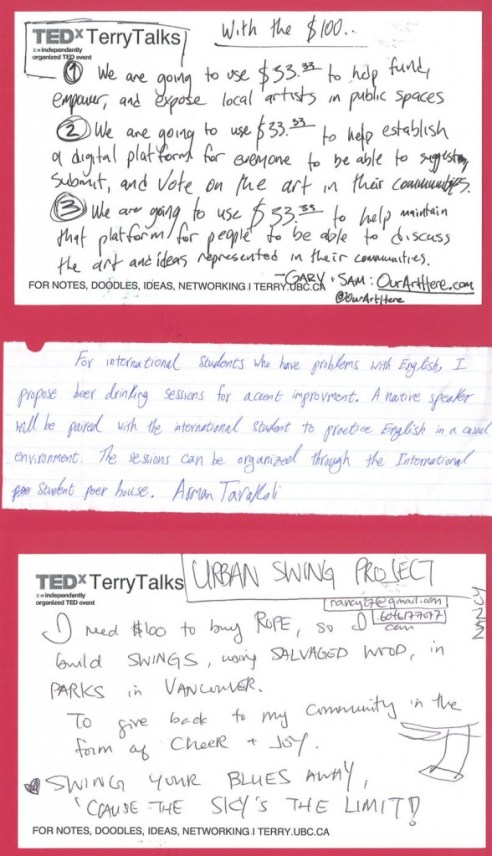 TEDx TerryTalks
x = independently
organized TED event
With the $100..
① We are going to use $33.33 to help fund,
empower, and expose local artists in public spaces
② We are going to use $33.33 to help establish
a digital platform for everyone to be able to suggest,
submit, and vote on the art in their communities.
③ We are going to use $33.33 to help maintain
that platform for people to be able to discuss
the art and ideas represented in their communities.
- GARY + SAM : OurArtHere.com
FOR NOTES, DOODLES, IDEAS, NETWORKING | TERRY.UBC.CA
@OurArtHere
For international students who have problems with English, I
propose beer drinking sessions for accent improvment. A native speaker
will be paired with the international student to practice English in a casual
environment. The sessions can be organized through the International
Student peer house. Arman Tarakoli
TEDx TerryTalks
x = independently
organized TED event
URBAN SWING PROJECT
NANCY
I need $100 to buy ROPE, so I can
build SWINGS, using SALVAGED WOOD, in
PARKS in VANCOUVER.
To give back to my community in the
form of CHEER + JOY.
SWING YOUR BLUES AWAY,
'CAUSE THE SKY'S THE LIMIT!
FOR NOTES, DOODLES, IDEAS, NETWORKING | TERRY.UBC.CA